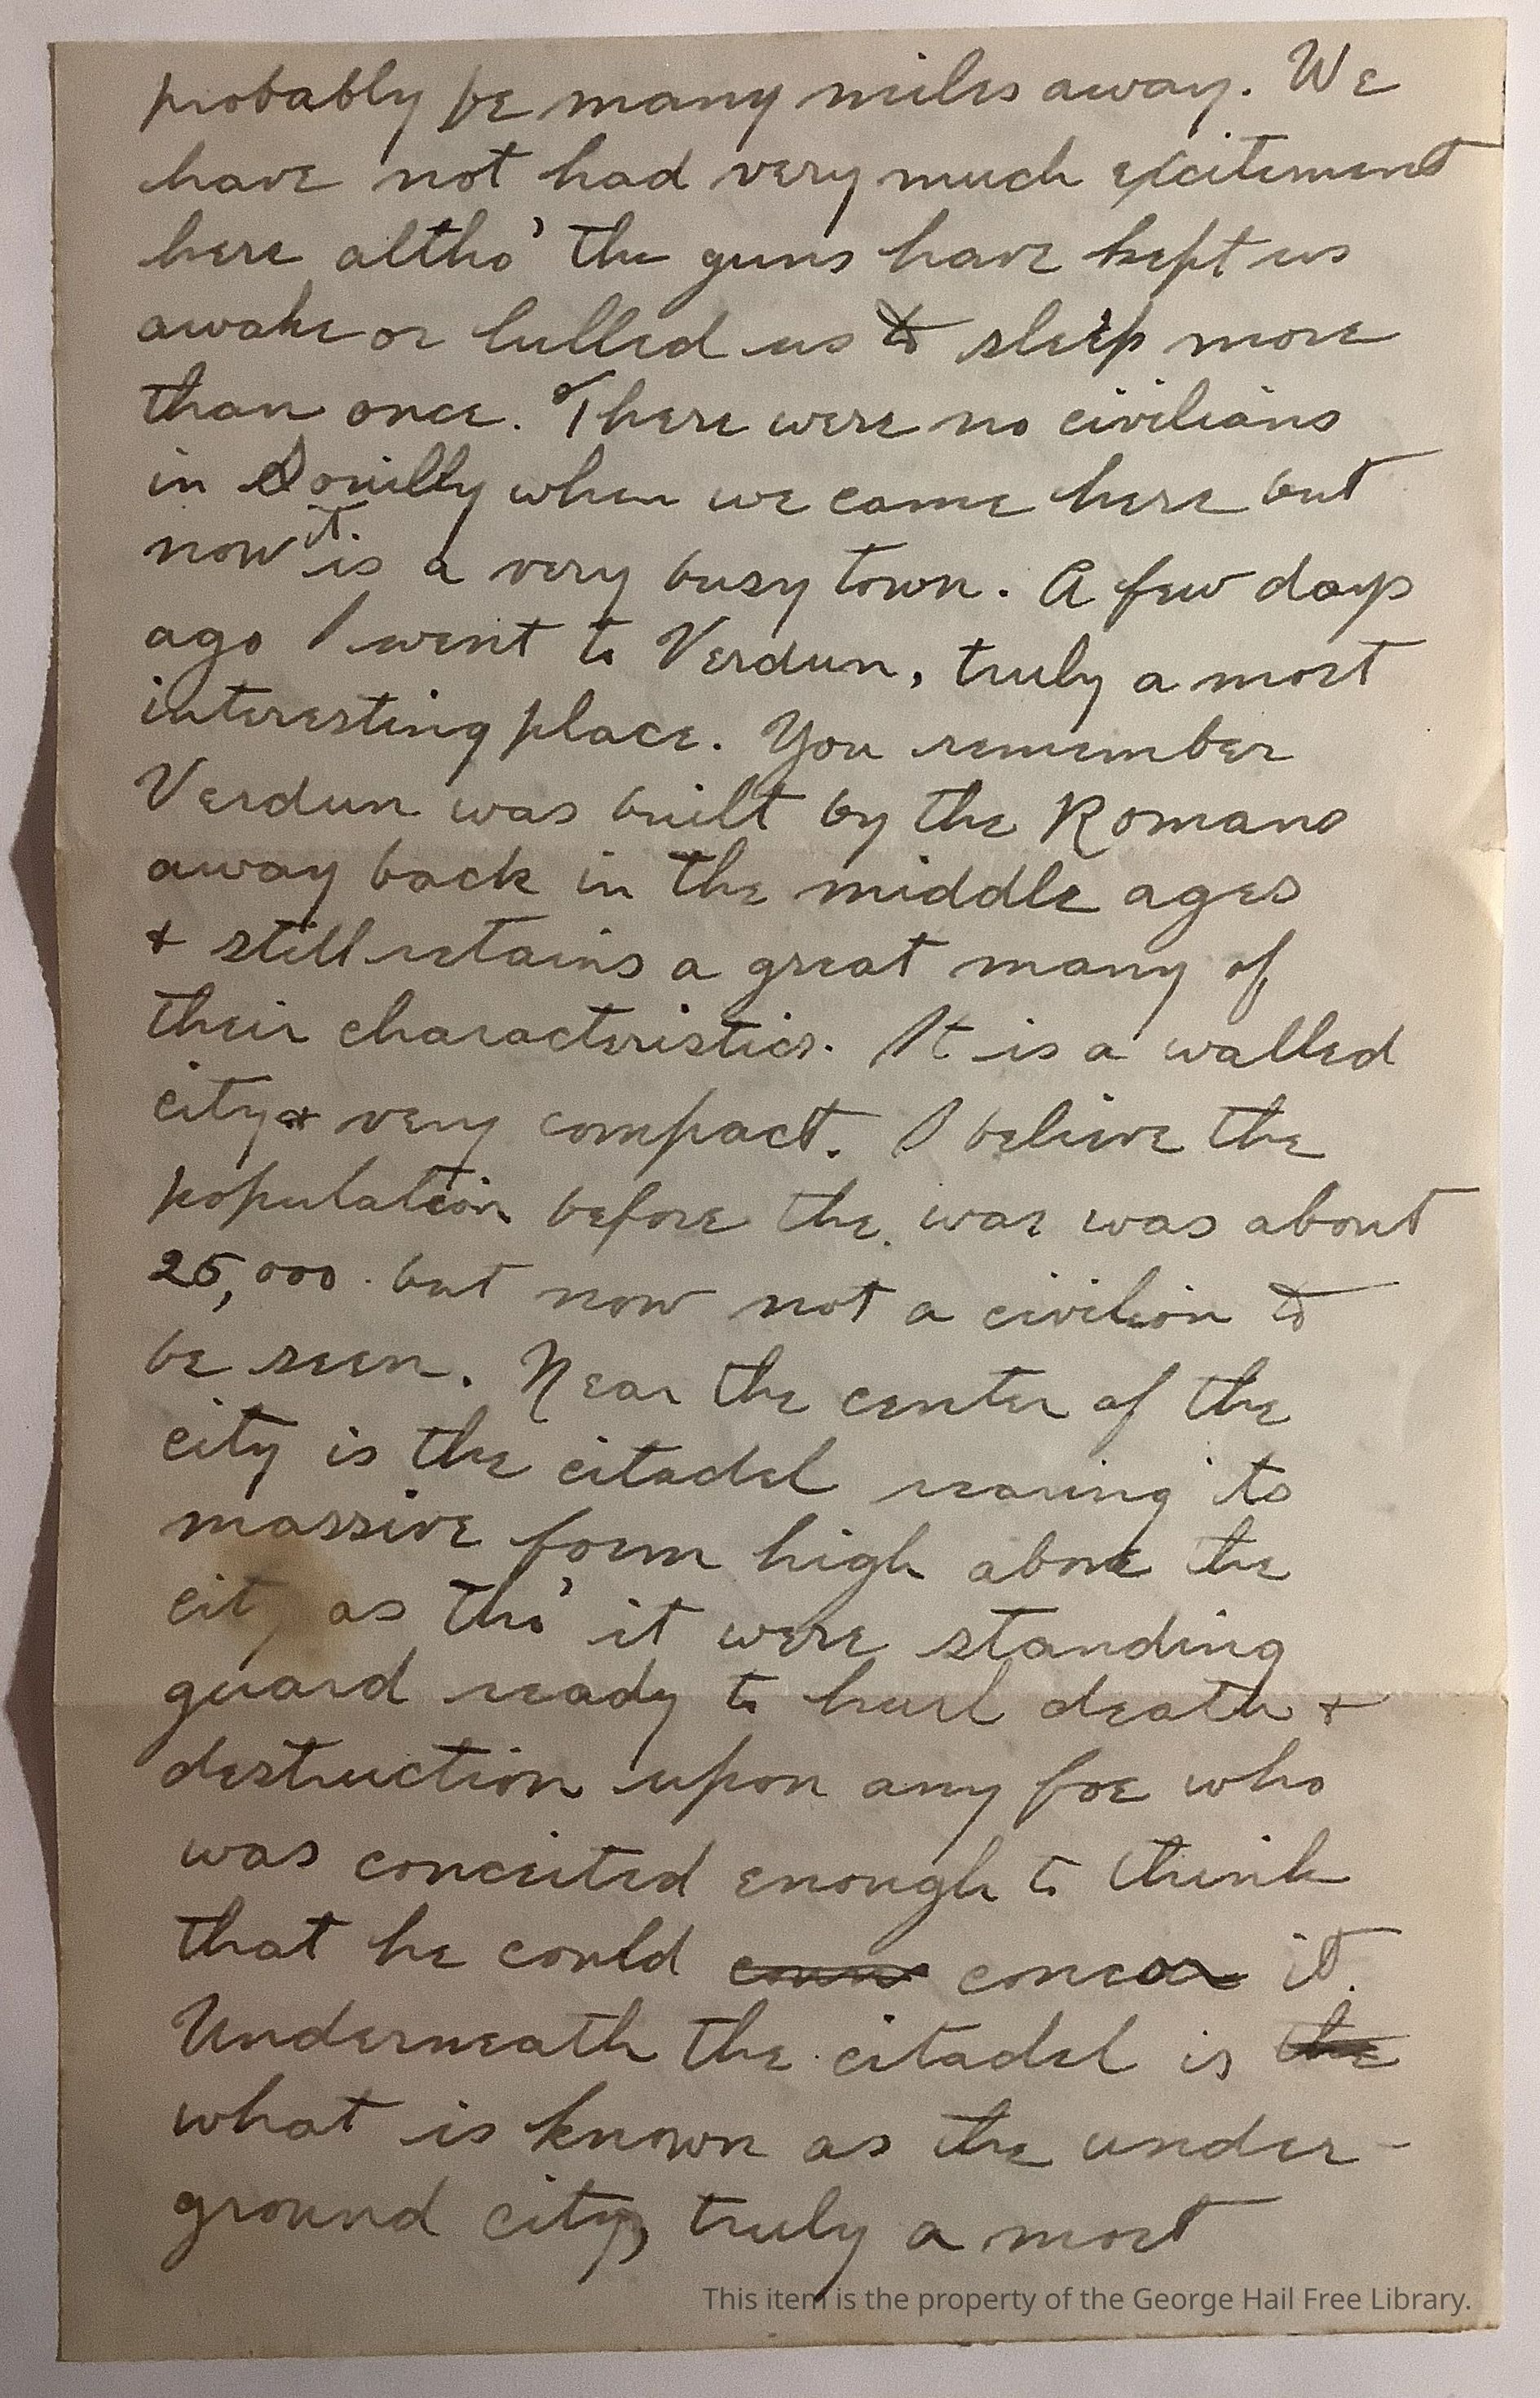 probably be many miles away. We
have not had very much excitement
here altho' the guns have kept us
awake or lulled us to sleep more
than once. There were no civilians
in Souilly when we came here but
now it is a very busy town. A few days
ago I went to Verdun, truly a most
interesting place. You remember
Verdun was built by the Romans
away back in the middle ages
+ still retains a great many of
their characteristics. It is a walled
city + very compact. I believe the
population before the war was about
25,000. but now not a civilion to
be seen. Near the center of the
city is the citadel rearing its
massive form high above the
city as tho' it were standing
guard ready to hurl death +
destruction upon any foe who
was conceited enough to think
that he could it.
Underneath the citadel is the
what is known as the under-
ground city, truly a most
This item is the property of the George Hail Free Library.